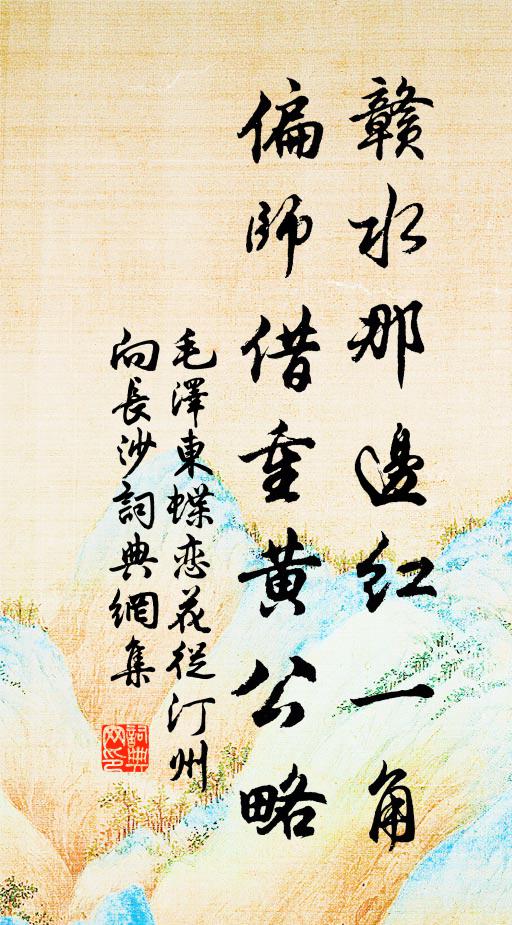 贛水那邊紅一角
偏師借重黃公略
毛澤東蝶恋花從汀州
向長沙詞典網集
詞典
网印